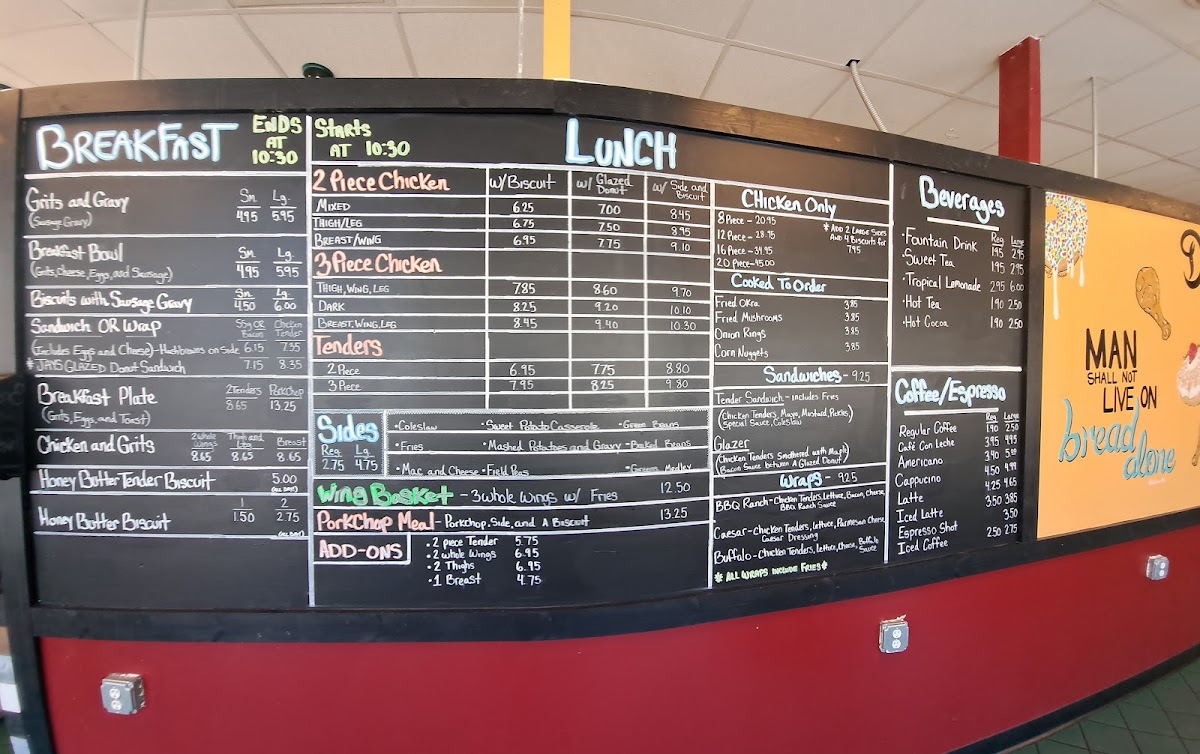 BREAKFAST ENDS AT 10:30
Grits and Gravy Sm. Lg.
(Sausage Gravy) 4.95 5.95
Breakfast Bowl Sm. Lg.
(Grits, Cheese, Eggs, and Sausage) 4.95 5.95
Biscuits with Sausage Gravy Sm. Lg.
4.50 6.00
Sandwich OR Wrap Chicken Tender
(Includes Eggs and Cheese) - Hashbrowns on Side 6.15 7.35
* JAYS GLAZED Donut Sandwich 7.15 8.35
Breakfast Plate 2 Tenders PorkChop
(Grits, Eggs, and Toast) 8.65 13.25
Chicken and Grits 2 Whole Wings Thigh and Leg Breast
8.65 8.65 8.65
Honey Butter Tender Biscuit 5.00
(ALL DAY)
Honey Butter Biscuit 1 2
1.50 2.75
(ALL DAY)
Starts AT 10:30
LUNCH
2 Piece Chicken w/ Biscuit w/ Glazed Donut w/ Side and Biscuit
MIXED 6.25 7.00 8.45
THIGH/LEG 6.75 7.50 8.95
BREAST/WING 6.95 7.75 9.10
3 Piece Chicken
THIGH, WING, LEG 7.85 8.60 9.70
DARK 8.25 9.20 10.10
BREAST, WING, LEG 8.45 9.40 10.30
Tenders
2 Piece 6.95 7.75 8.80
3 Piece 7.95 8.25 9.80
Sides
Reg. Lg.
2.75 4.75
• Coleslaw • Sweet Potato Casserole • Green Beans
• Fries • Mashed Potatoes and Gravy • Baked Beans
• Mac and Cheese • Field Peas • Greens Medley
Wing Basket - 3 whole wings w/ Fries 12.50
PorkChop Meal - Porkchop, Side, and A Biscuit 13.25
ADD-ONS
• 2 piece Tender 5.75
• 2 whole Wings 6.95
• 2 Thighs 6.95
• 1 Breast 4.75
Chicken Only
8 Piece - 20.95
12 Piece - 28.95
16 Piece - 34.95
20 Piece - 45.00
* ADD 2 LARGE SIDES
AND 4 BISCUITS for
7.95
Cooked To Order
Fried Okra 3.85
Fried Mushrooms 3.85
Onion Rings 3.85
Corn Nuggets 3.85
Sandwiches - 9.25
Tender Sandwich - includes Fries
(Chicken Tenders, Mayo, Mustard, Pickles,)
(Special Sauce, Coleslaw)
Glazer
(Chicken Tenders Smothered with Maple)
(Bacon Sauce between A Glazed Donut)
Wraps - 9.25
BBQ Ranch - Chicken Tenders, Lettuce, Bacon, Cheese,
BBQ Ranch Sauce
Caesar - Chicken Tenders, Lettuce, Parmesan Cheese
Caesar Dressing
Buffalo - Chicken Tenders, Lettuce, Cheese, Buffalo
Sauce
* ALL WRAPS INCLUDE FRIES *
Beverages
Reg Large
• Fountain Drink 1.95 2.95
• Sweet Tea 1.95 2.95
• Tropical Lemonade 2.95 6.00
• Hot Tea 1.90 2.50
• Hot Cocoa 1.90 2.50
Coffee/Espresso
Reg Large
Regular Coffee 1.90 2.50
Café Con Leche 3.95 4.95
Americano 3.40
Cappucino 4.50 4.99
Latte 4.25 4.65
Iced Latte 3.50 3.85
Espresso Shot 3.50
Iced Coffee 2.50 2.75
MAN
SHALL NOT
LIVE ON
bread
alone